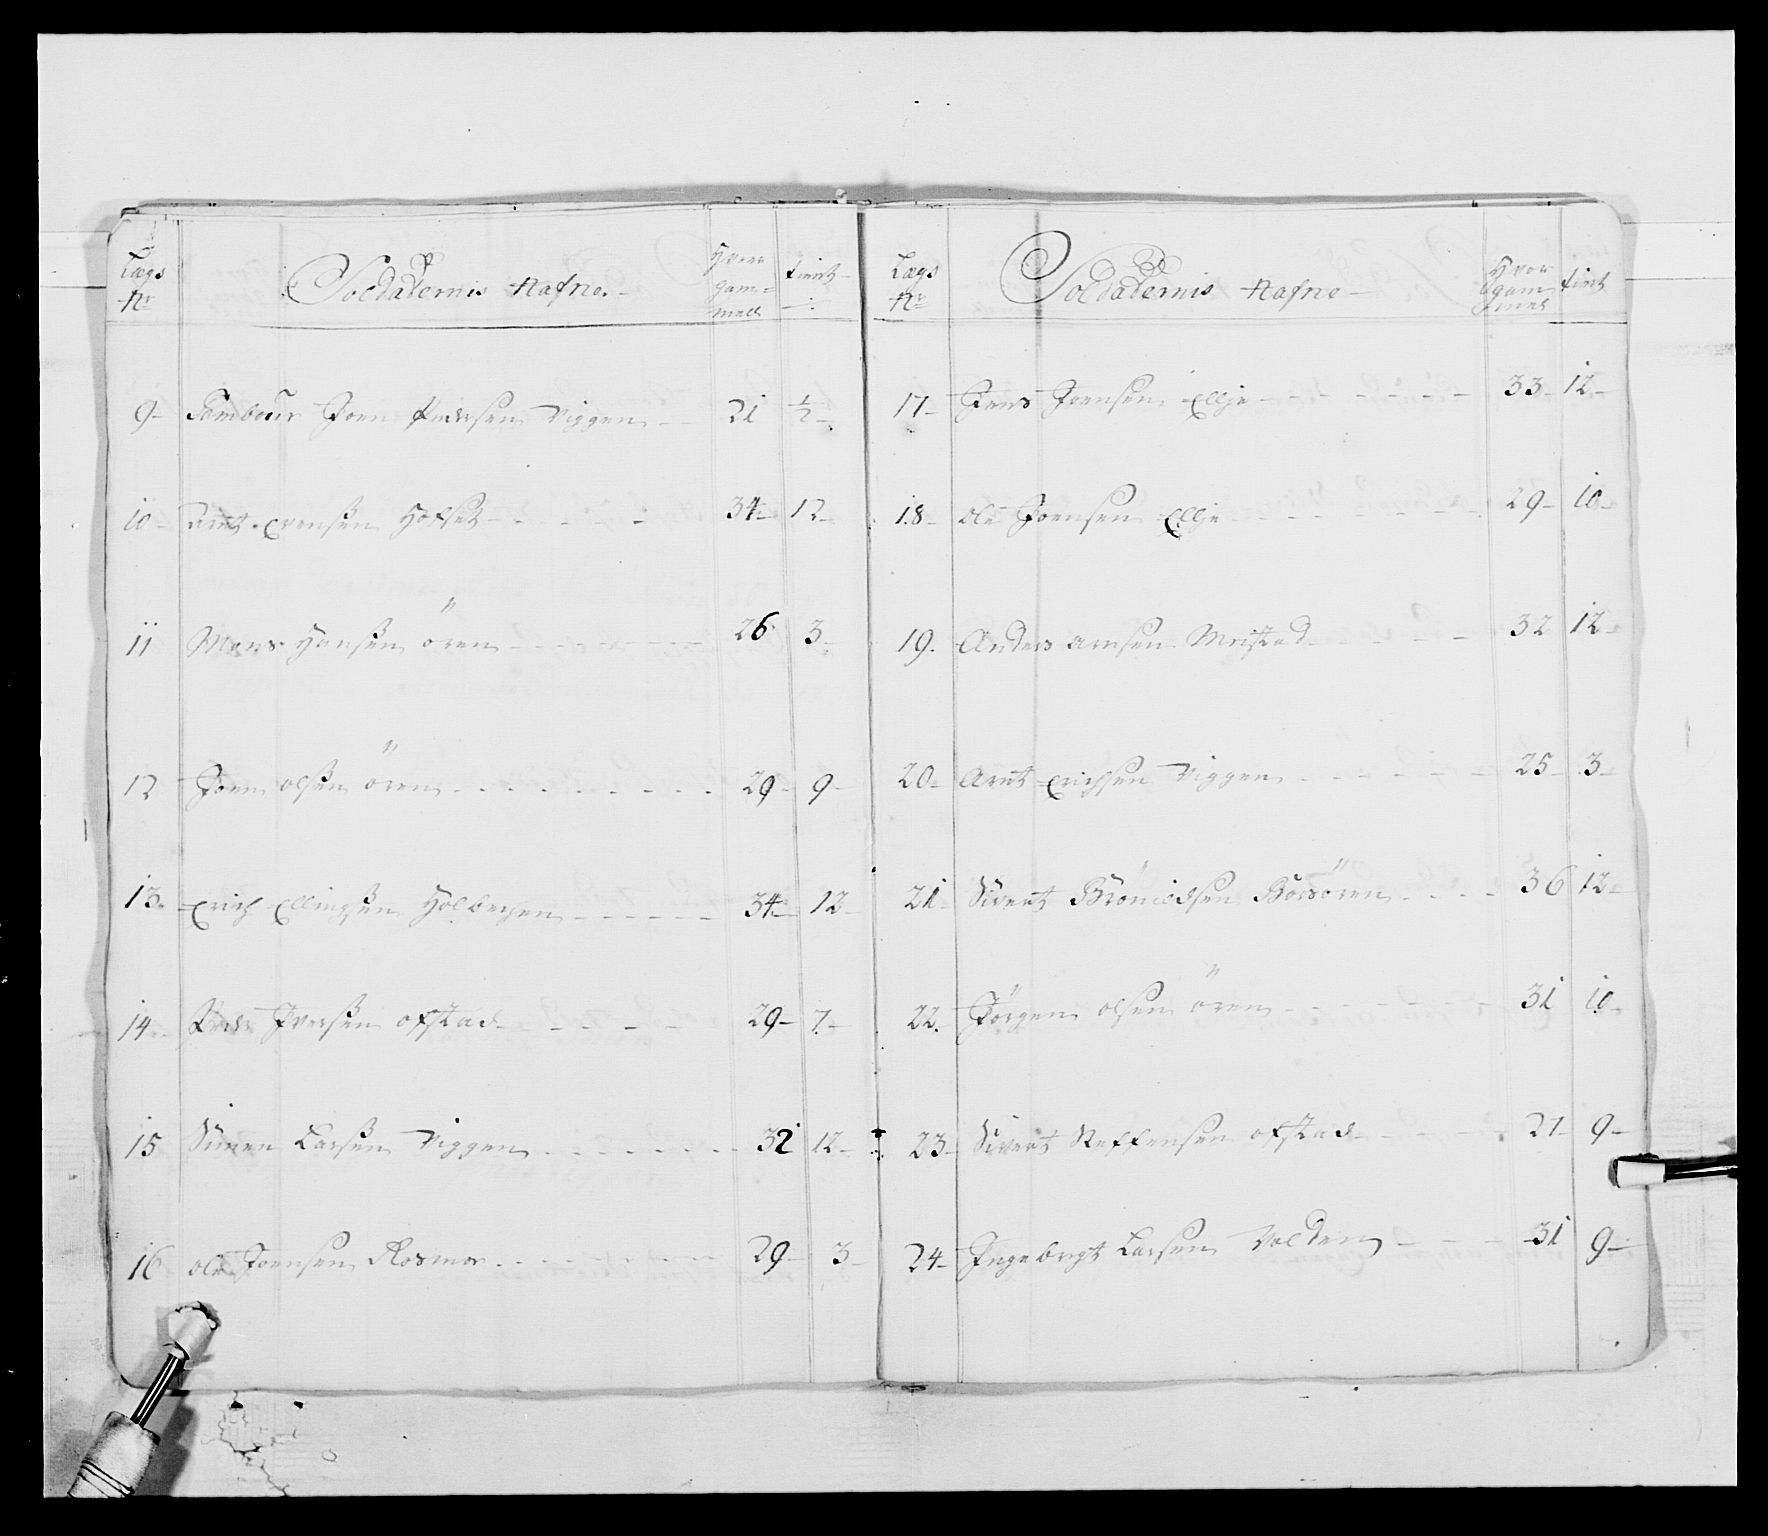 Lægs Nr Soldadernis Nafne. Hvor gammell tient
9 Tambour Joen Pedersen Viggen 21 1/2
10 Arnt Evensen Hofset 34 12
11 Mons Hansen ören 26 3
12 Joen olsen ören 29 9
13 Erich Ellingsen Holbechen 34 12
14 Peder Iversen ofstad 29 7
15 Simen Larsen Viggen 32 12
16 ole Joensen Rosmo 29 3
Lægs Nr Soldadernis Nafne Hvor gammel tient
17 Jens Joensen Ellje 33 12
18 ole Joensen Ellje 29 10
19. Anders arnsen Meistad 32 12
20 Arnt Erichsen Viggen 25 3
21 Sivert Brönildsen Börsören 36 12
22 Jörgen olsen ören 31 10
23 Sivert Steffensen ofstad 27 9
24 Ingebrigt Larsen Volden 31 9